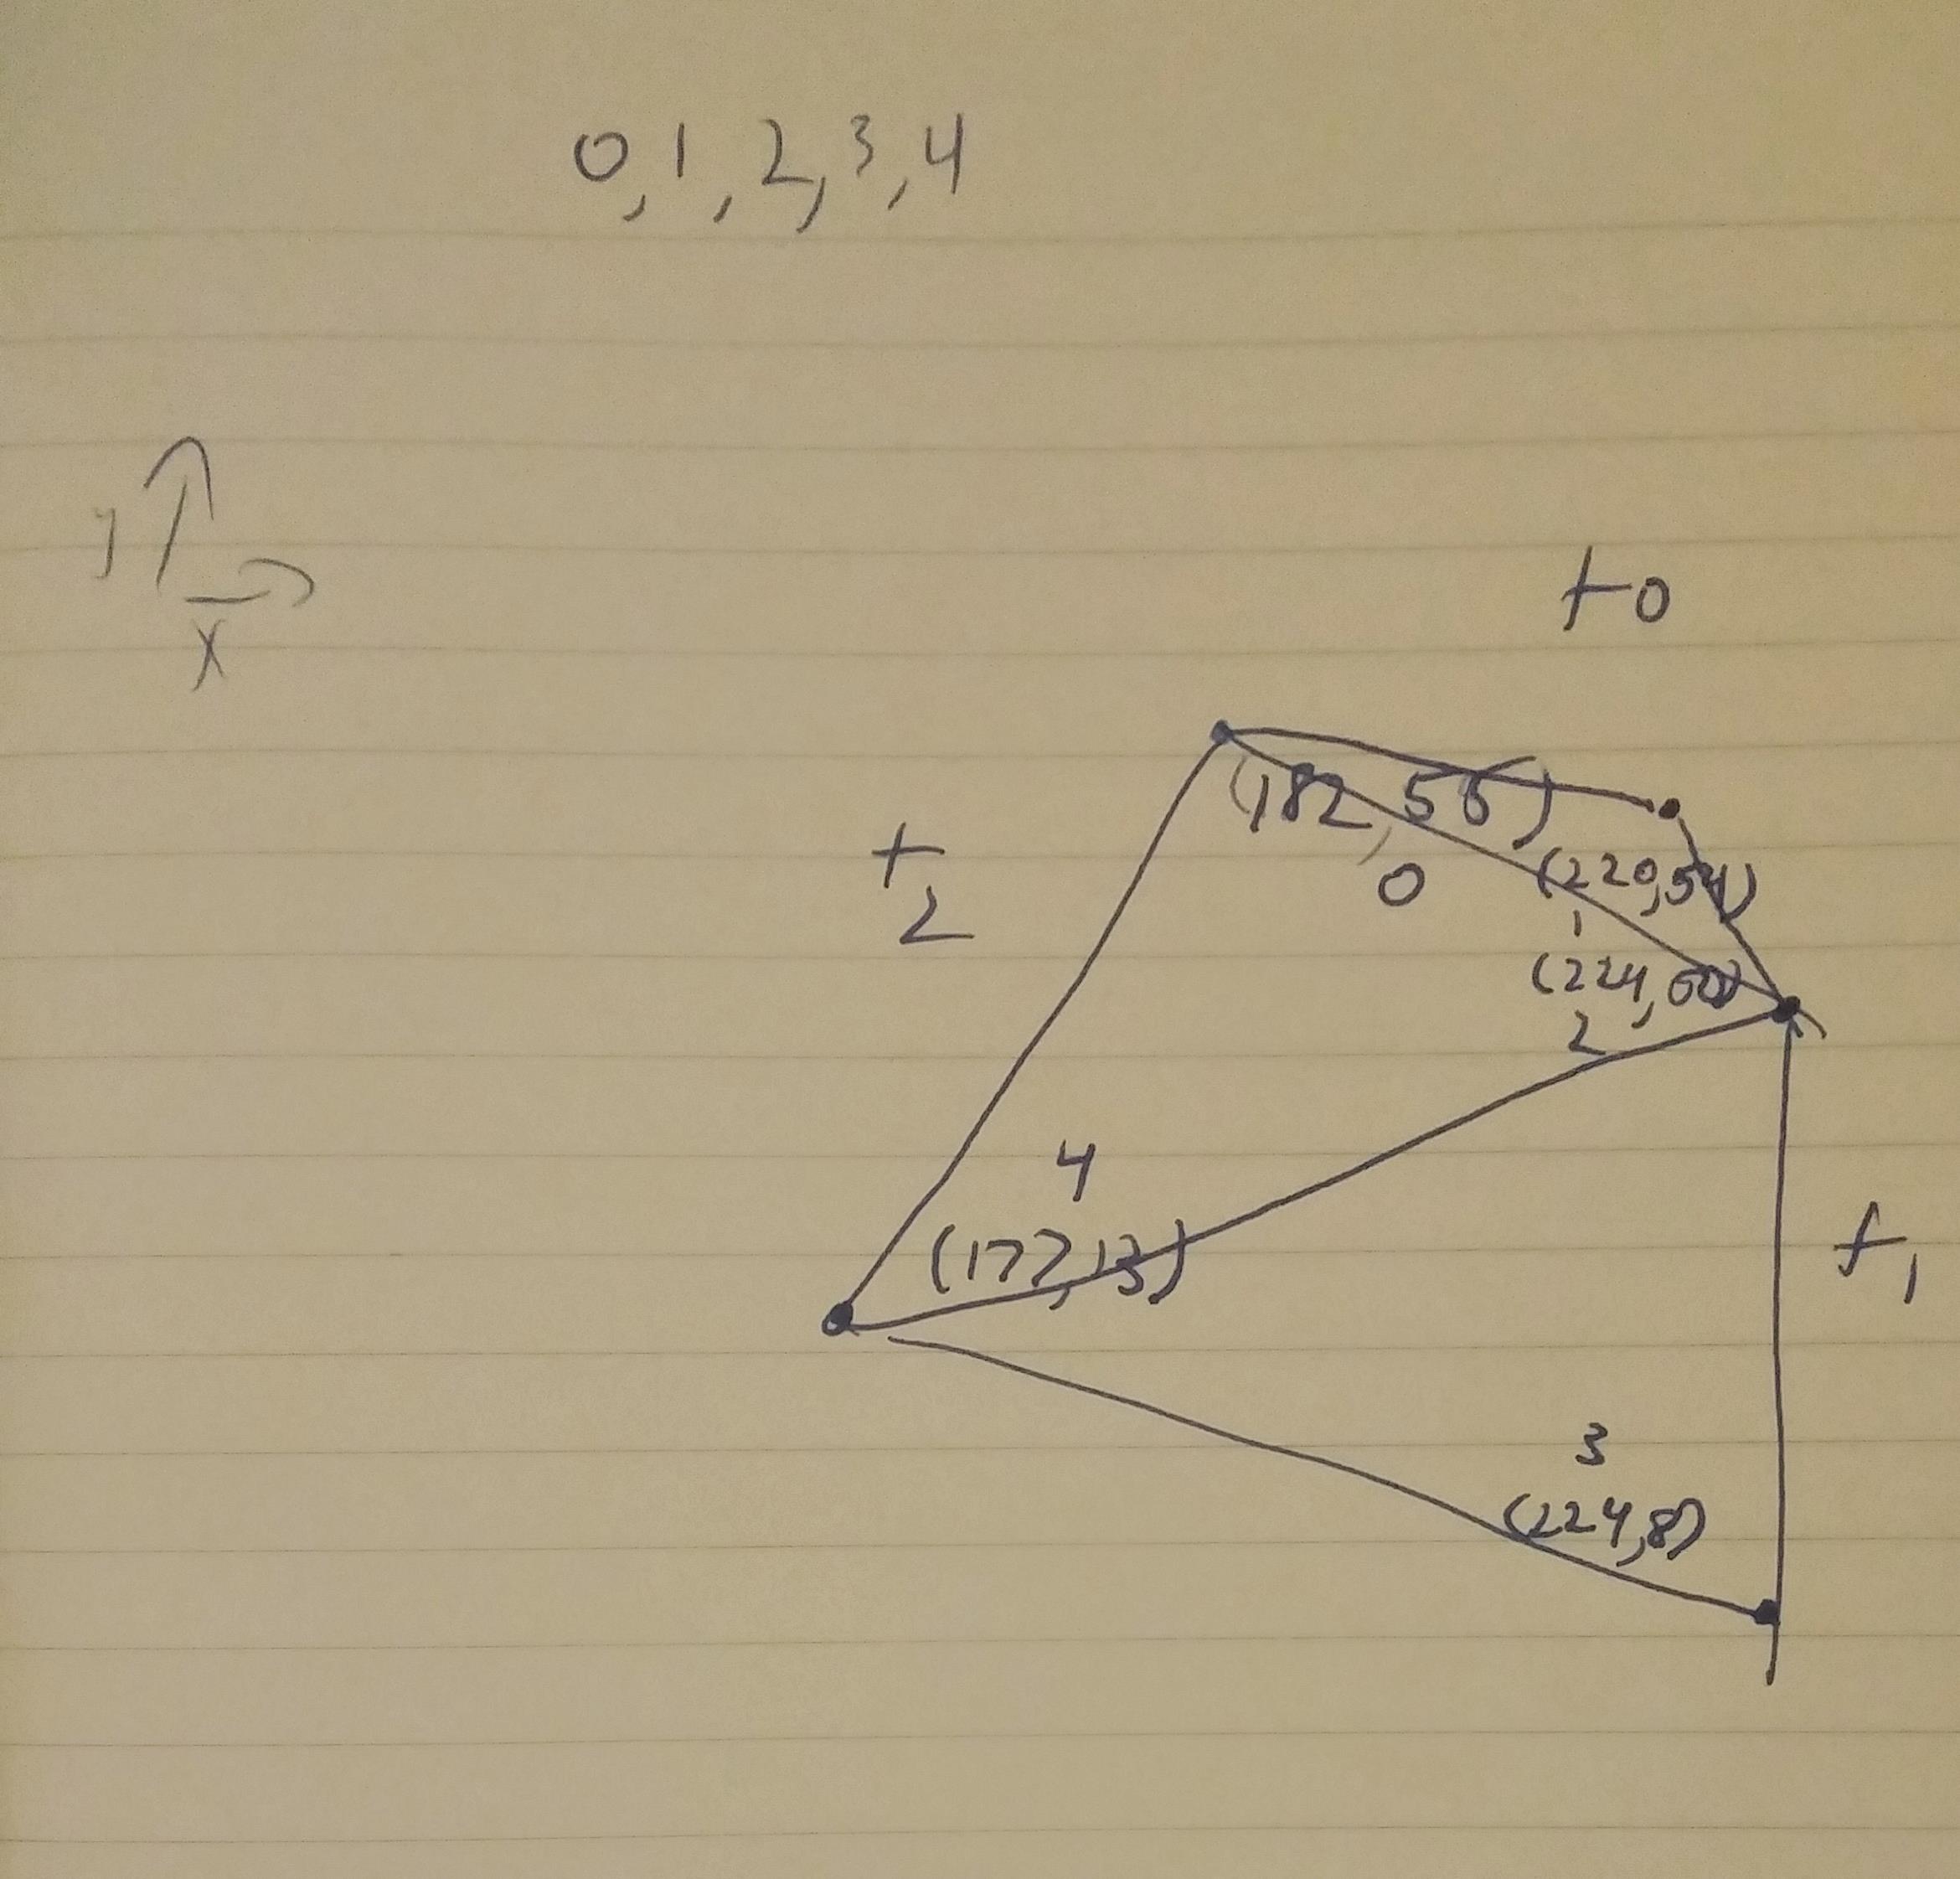 0, 1, 2, 3, 4
y
x
t0
t2
(182, 56)
0
(220,54)
1
(224, 50)
2
4
(177, 13)
t1
3
(224,8)